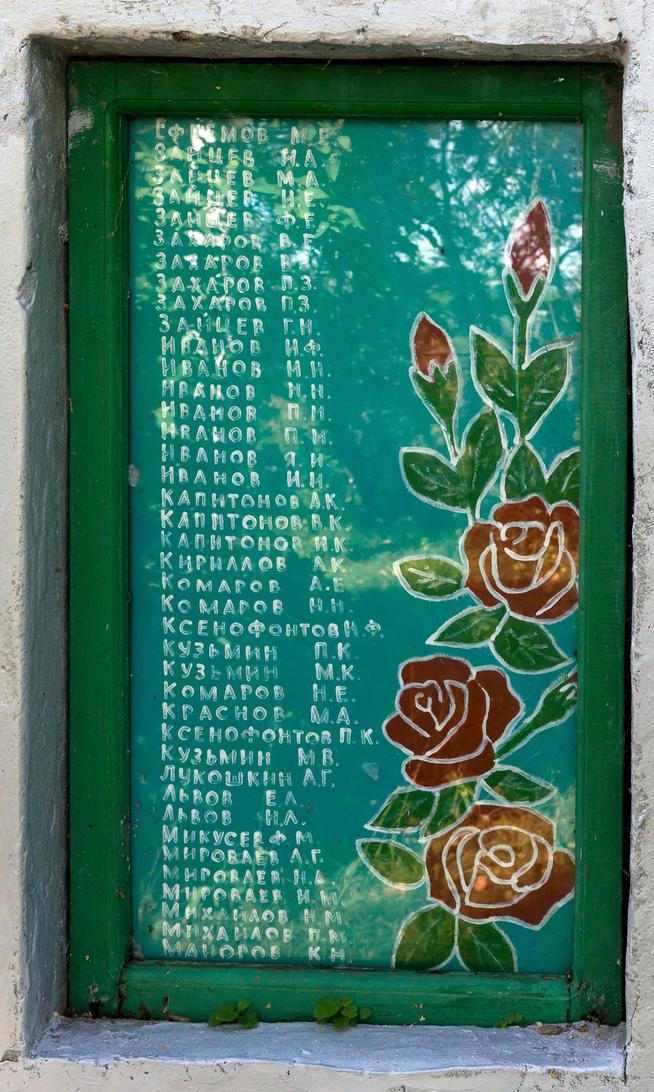 ЕФРЕМОВ М.Е.
ЗАЙЦЕВ И.А.
ЗАЙЦЕВ М.А.
ЗАЙЦЕВ И.Е.
ЗАЙЦЕВ Ф.Е.
ЗАХАРОВ В.Е.
ЗАХАРОВ
ЗАХАРОВ П.З.
ЗАХАРОВ П.З.
ЗАЙЦЕВ Г.И.
ИВАНОВ И.Ф.
ИВАНОВ И.И.
ИВАНОВ Н.Н.
ИВАНОВ П.И.
ИВАНОВ П.И.
ИВАНОВ Я.И.
ИВАНОВ И.И.
КАПИТОНОВ А.К.
КАПИТОНОВ В.К.
КАПИТОНОВ И.К.
КИРИЛЛОВ А.К.
КОМАРОВ А.Е.
КОМАРОВ Н.Н.
КСЕНОФОНТОВ Н.Ф.
КУЗЬМИН П.К.
КУЗЬМИН М.К.
КОМАРОВ Н.Е.
КРАСНОВ М.А.
КСЕНОФОНТОВ П.К.
КУЗЬМИН М.В.
ЛУКОШКИН А.Г.
ЛЬВОВ Е.Л.
ЛЬВОВ Н.Л.
МИКУСЕВ Ф.М.
МИРОВАЕВ А.Г.
МИРОВАЕВ Н.А.
МИРОВАЕВ И.М.
МИХАЙЛОВ Н.М.
МИХАЙЛОВ П.М.
МАЙОРОВ К.Н.